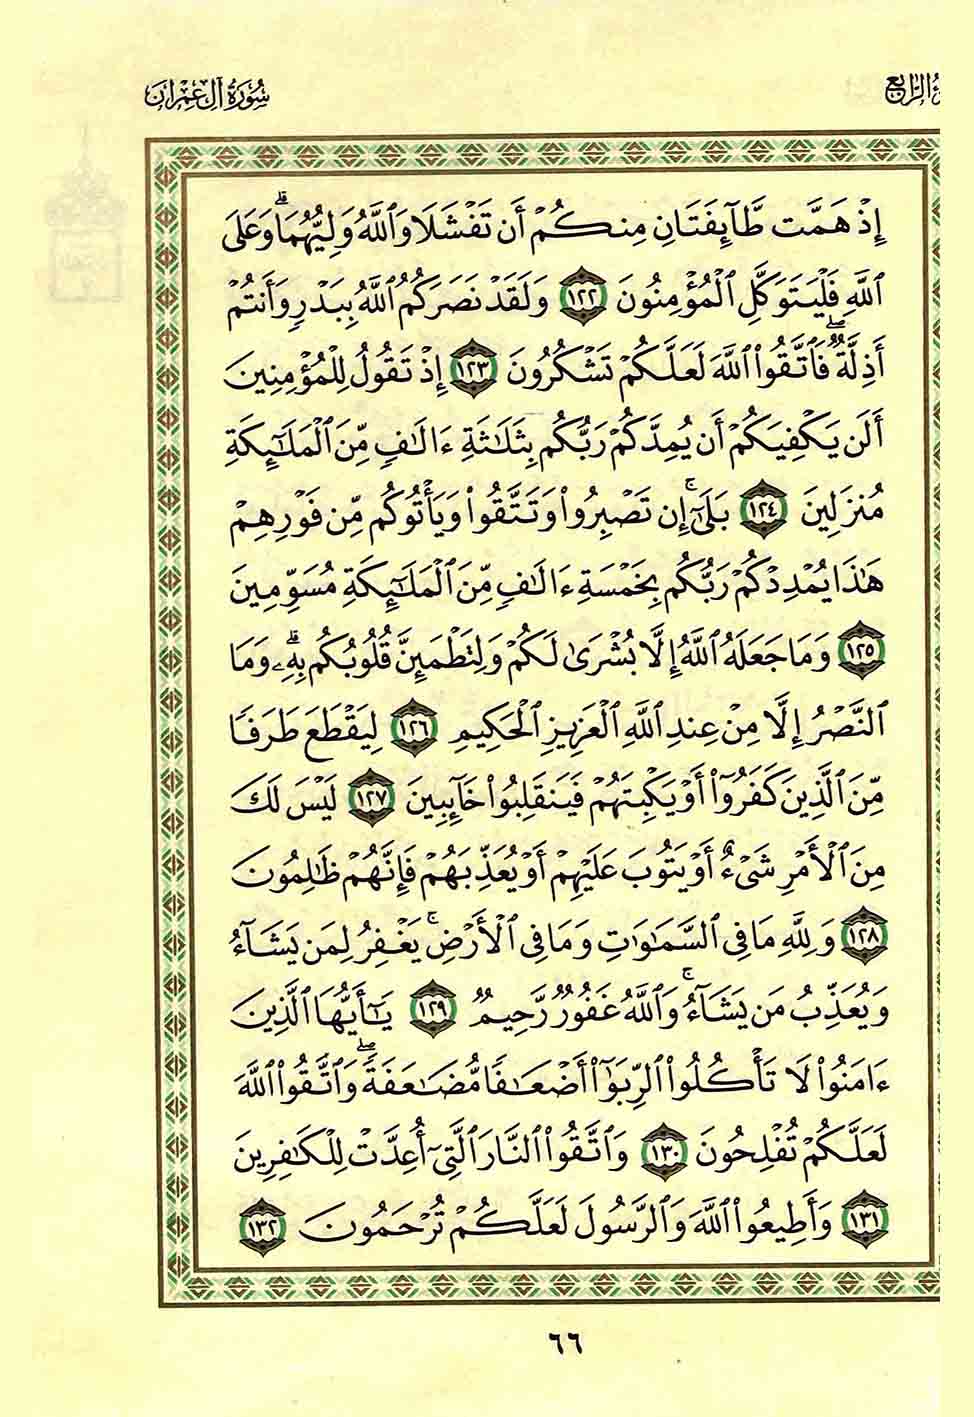 سُورَةُ آلِ عِمْرَانَ
ءُ الرَّابِعُ
إِذْ هَمَّت طَّآئِفَتَانِ مِنكُمْ أَن تَفْشَلَا وَٱللَّهُ وَلِيُّهُمَاۗ وَعَلَى
ٱللَّهِ فَلْيَتَوَكَّلِ ٱلْمُؤْمِنُونَ ١٢٢ وَلَقَدْ نَصَرَكُمُ ٱللَّهُ بِبَدْرٍ وَأَنتُمْ
أَذِلَّةٌۖ فَٱتَّقُوا۟ ٱللَّهَ لَعَلَّكُمْ تَشْكُرُونَ ١٢٣ إِذْ تَقُولُ لِلْمُؤْمِنِينَ
أَلَن يَكْفِيَكُمْ أَن يُمِدَّكُمْ رَبُّكُم بِثَلَٰثَةِ ءَالَٰفٍ مِّنَ ٱلْمَلَٰٓئِكَةِ
مُنزَلِينَ ١٢٤ بَلَىٰٓۚ إِن تَصْبِرُوا۟ وَتَتَّقُوا۟ وَيَأْتُوكُم مِّن فَوْرِهِمْ
هَٰذَا يُمْدِدْكُمْ رَبُّكُم بِخَمْسَةِ ءَالَٰفٍ مِّنَ ٱلْمَلَٰٓئِكَةِ مُسَوِّمِينَ
١٢٥ وَمَا جَعَلَهُ ٱللَّهُ إِلَّا بُشْرَىٰ لَكُمْ وَلِتَطْمَئِنَّ قُلُوبُكُم بِهِۦۗ وَمَا
ٱلنَّصْرُ إِلَّا مِنْ عِندِ ٱللَّهِ ٱلْعَزِيزِ ٱلْحَكِيمِ ١٢٦ لِيَقْطَعَ طَرَفًا
مِّنَ ٱلَّذِينَ كَفَرُوٓا۟ أَوْ يَكْبِتَهُمْ فَيَنقَلِبُوا۟ خَآئِبِينَ ١٢٧ لَيْسَ لَكَ
مِنَ ٱلْأَمْرِ شَىْءٌ أَوْ يَتُوبَ عَلَيْهِمْ أَوْ يُعَذِّبَهُمْ فَإِنَّهُمْ ظَٰلِمُونَ
١٢٨ وَلِلَّهِ مَا فِى ٱلسَّمَٰوَٰتِ وَمَا فِى ٱلْأَرْضِۚ يَغْفِرُ لِمَن يَشَآءُ
وَيُعَذِّبُ مَن يَشَآءُۚ وَٱللَّهُ غَفُورٌ رَّحِيمٌ ١٢٩ يَٰٓأَيُّهَا ٱلَّذِينَ
ءَامَنُوا۟ لَا تَأْكُلُوا۟ ٱلرِّبَوٰٓا۟ أَضْعَٰفًا مُّضَٰعَفَةًۖ وَٱتَّقُوا۟ ٱللَّهَ
لَعَلَّكُمْ تُفْلِحُونَ ١٣٠ وَٱتَّقُوا۟ ٱلنَّارَ ٱلَّتِىٓ أُعِدَّتْ لِلْكَٰفِرِينَ
١٣١ وَأَطِيعُوا۟ ٱللَّهَ وَٱلرَّسُولَ لَعَلَّكُمْ تُرْحَمُونَ ١٣٢
٦٦